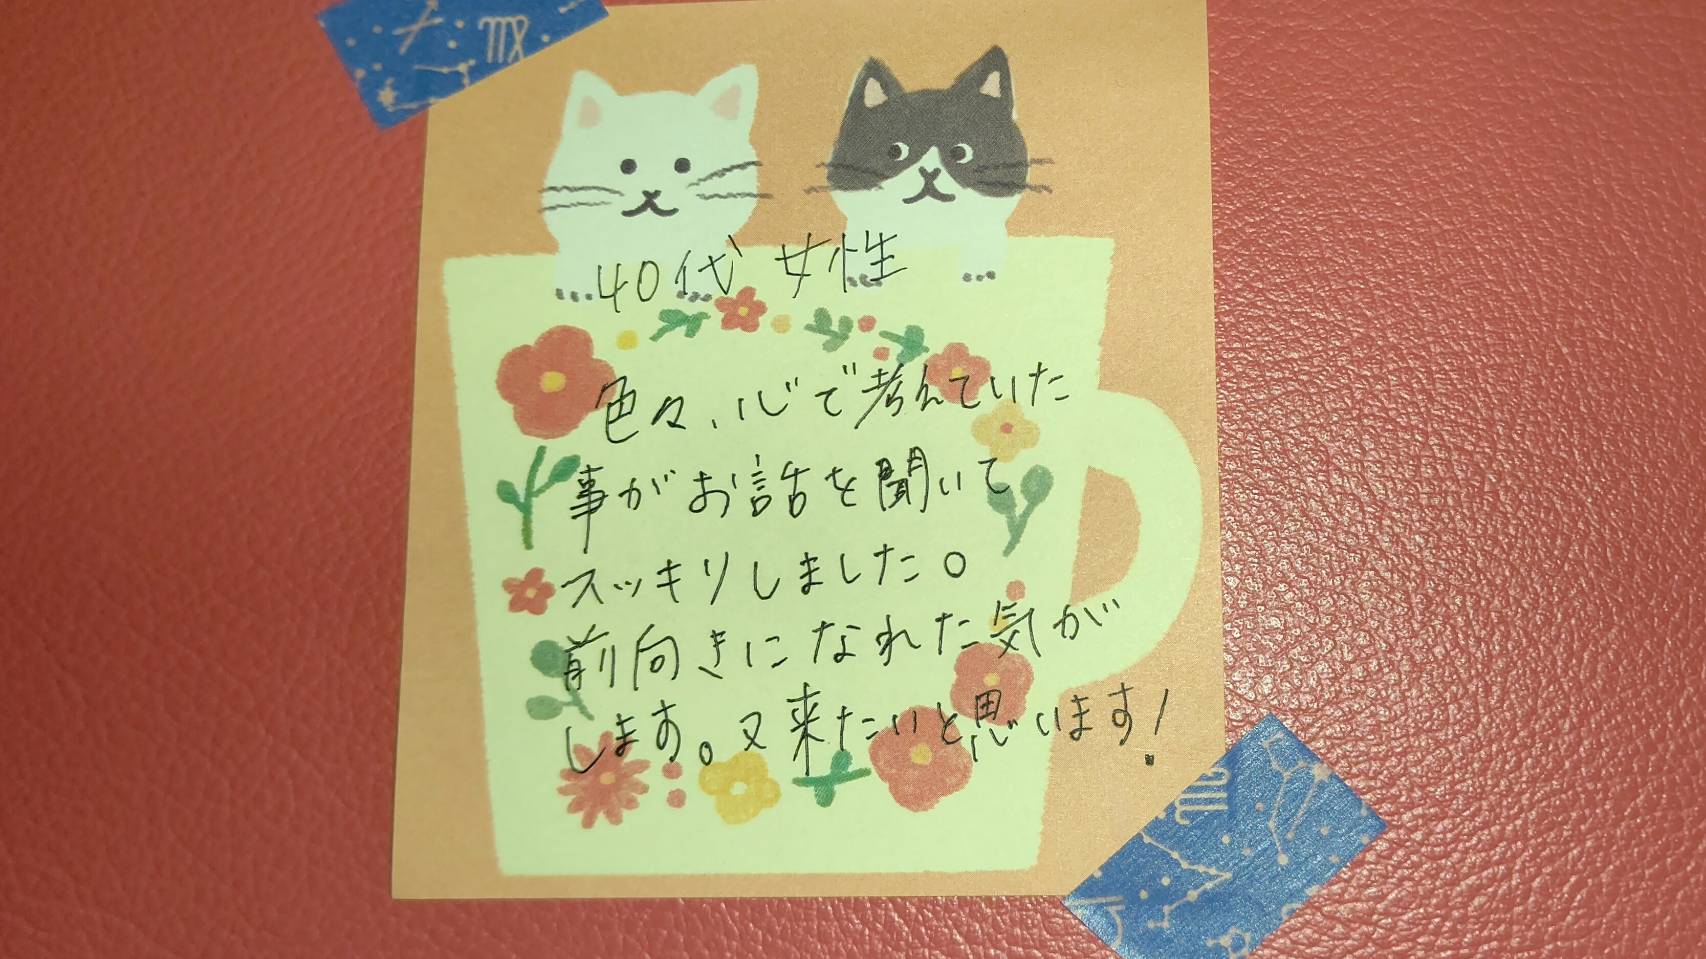 40代 女性
色々、心で考えていた
事がお話を聞いて
スッキリしました。
前向きになれた気が
します。又来たいと思います!